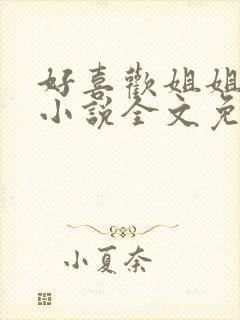 好喜歡姐姐
小說全文免
小夏奈